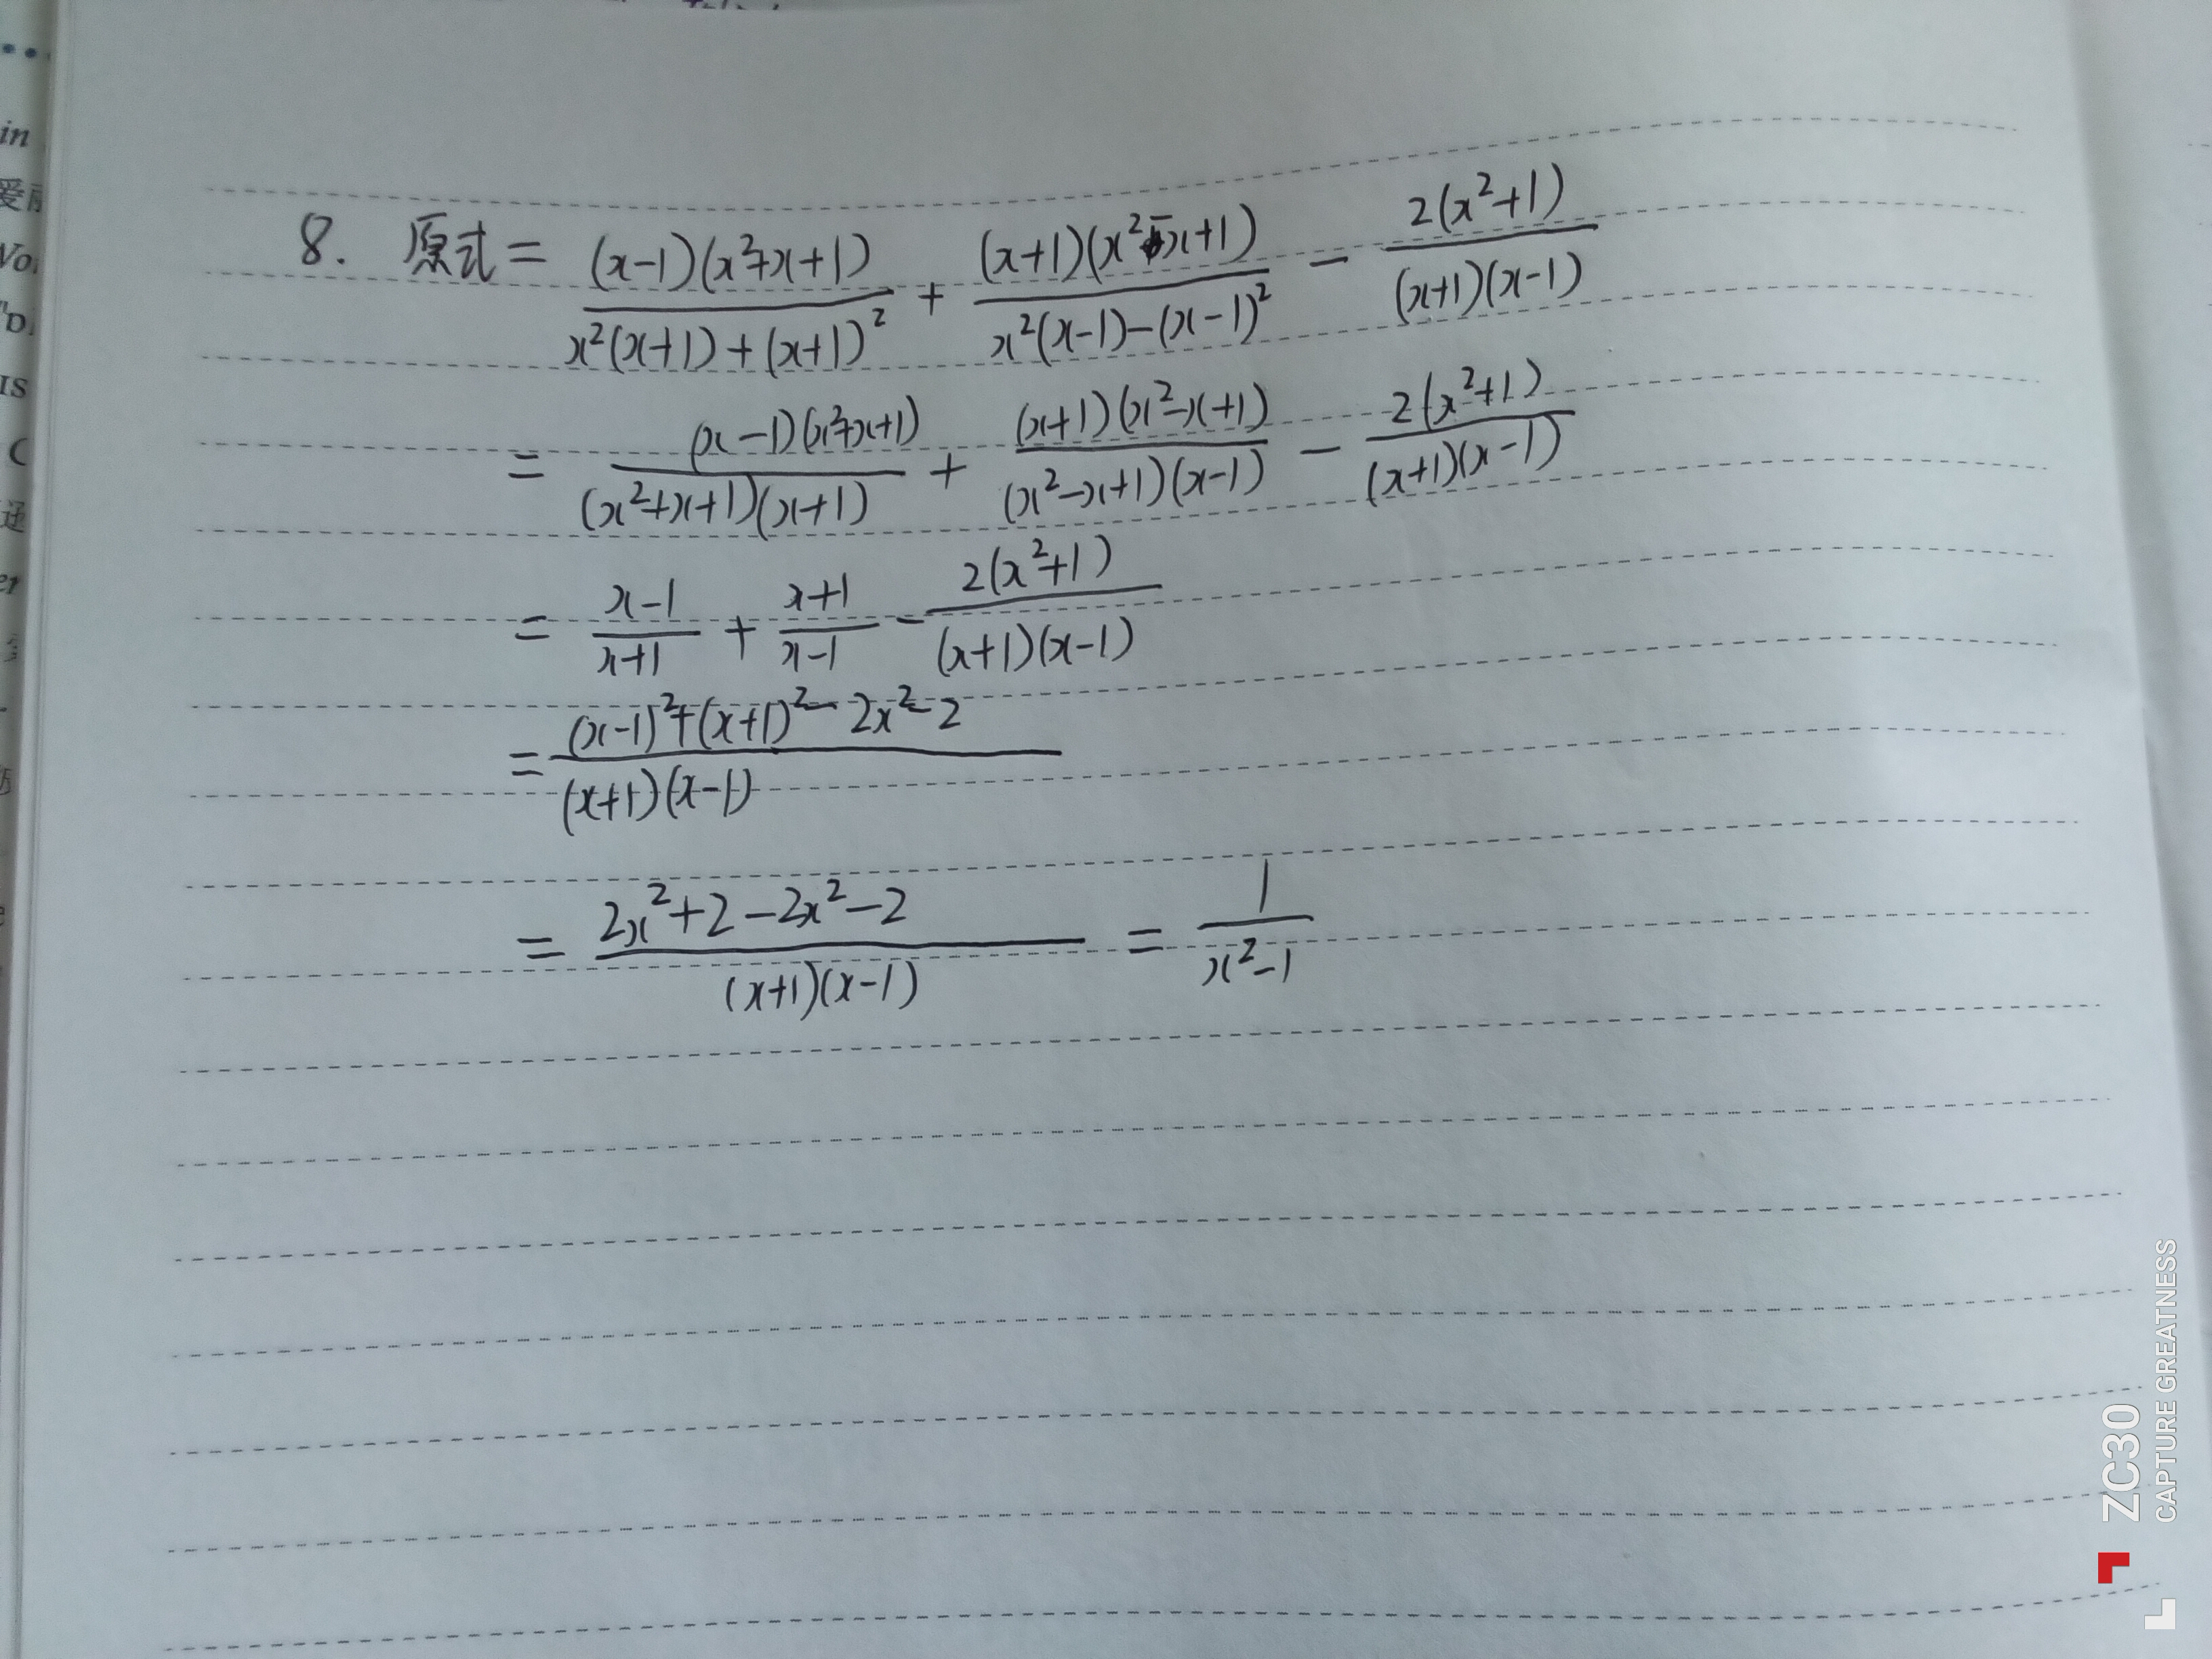 in
Vo
IS
C
er
8. 原式 = (x-1)(x²+x+1) / x²(x+1)+(x+1)² + (x+1)(x²-x+1) / x²(x-1)-(x-1)² - 2(x²+1) / (x+1)(x-1)
= (x-1)(x²+x+1) / (x²+x+1)(x+1) + (x+1)(x²-x+1) / (x²-x+1)(x-1) - 2(x²+1) / (x+1)(x-1)
= x-1 / x+1 + x+1 / x-1 - 2(x²+1) / (x+1)(x-1)
= (x-1)²+(x+1)²-2x²-2 / (x+1)(x-1)
= 2x²+2-2x²-2 / (x+1)(x-1) = 1 / x²-1
ZC30
CAPTURE GREATNESS